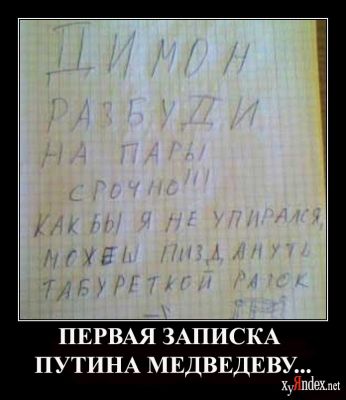 ДИМОН
РАЗБУДИ
НА ПАРЫ
СРОЧНО!!!
КАК БЫ Я НЕ УПИРАЛСЯ,
МОЖЕШ ПИЗДАНУТЬ
ТАБУРЕТКОЙ РАЗОК
ПЕРВАЯ ЗАПИСКА
ПУТИНА МЕДВЕДЕВУ...
ХуЯndex.net